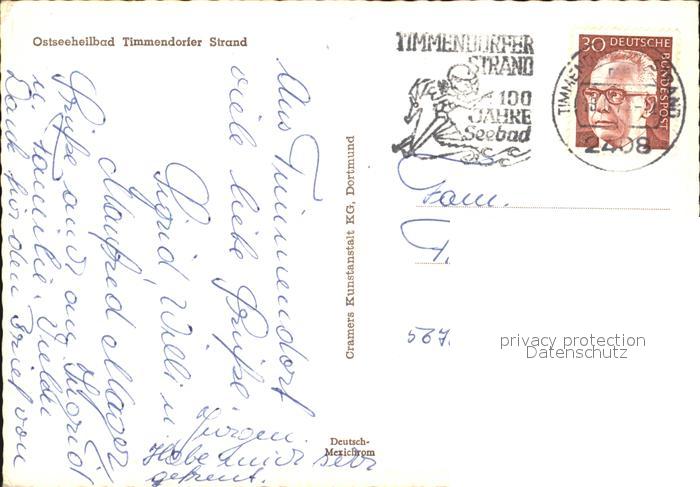 Ostseeheilbad Timmendorfer Strand
TIMMENDORFER
STRAND
100
JAHRE
Seebad
30 DEUTSCHE
BUNDESPOST
TIMMENDORFER STRAND
2408
Aus Timmendorf
viele liebe Grüße
Sigrid, Willi u
Jürgen.
Manfred
Grüße auch an
u. Familie
Dank für den Brief von
Habe mich sehr
gefreut.
Cramers Kunstanstalt KG, Dortmund
Deutsch-
Mexichrom
Fam.
F.
567.
privacy protection
Datenschutz